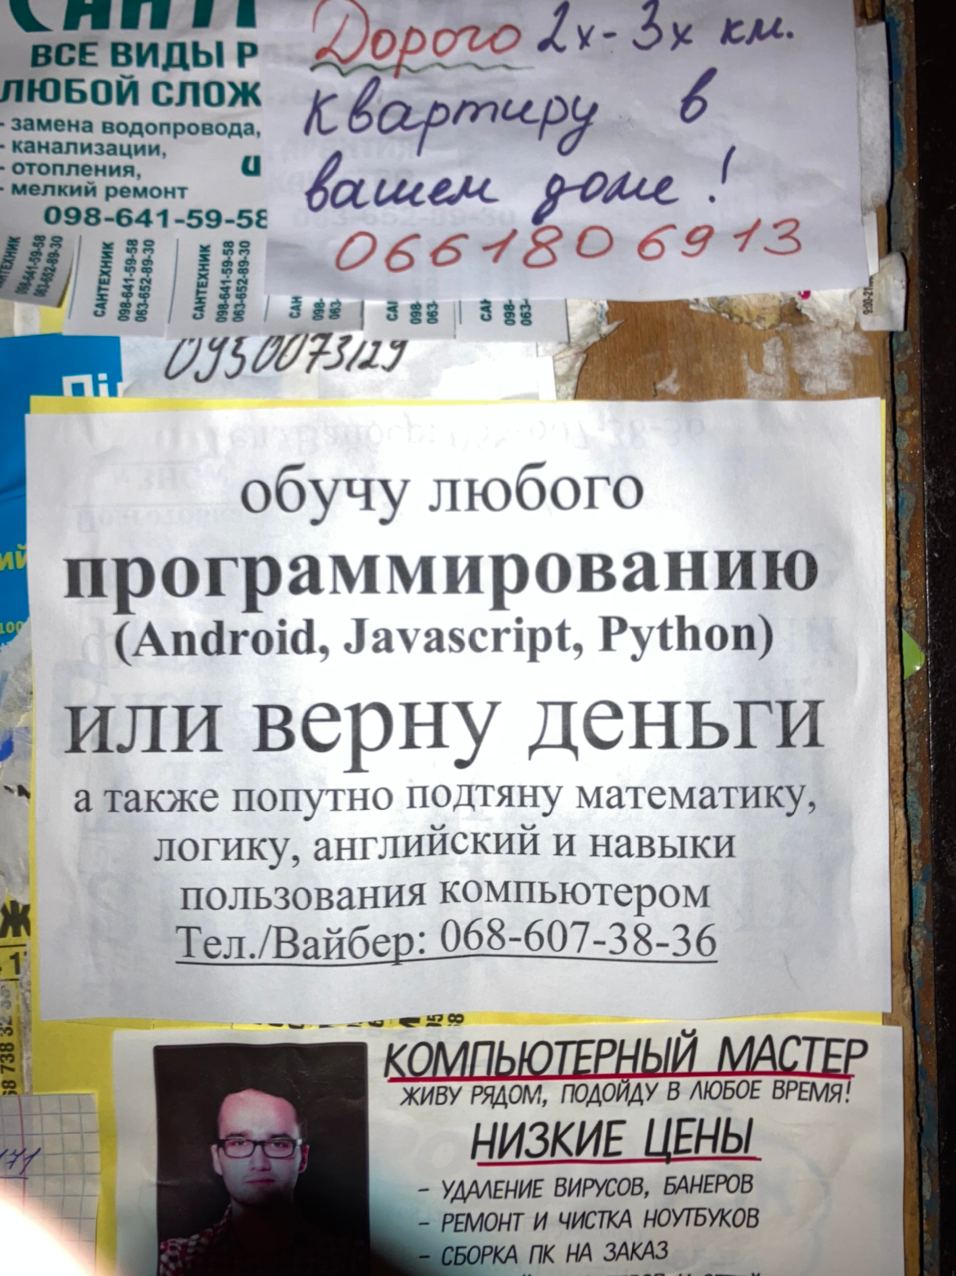 САНТ
ВСЕ ВИДЫ Р
ЛЮБОЙ СЛОЖ
- замена водопровода,
- канализации,
- отопления,
- мелкий ремонт
098-641-59-58
САНТЕХНИК
098-641-59-58
063-652-89-30
САНТЕХНИК
098-641-59-58
063-652-89-30
САНТЕХНИК
098-641-59-58
063-652-89-30
Дорого 2х-3х км.
квартиру в
вашем доме!
0661806913
0950073129
обучу любого
программированию
(Android, Javascript, Python)
или верну деньги
а также попутно подтяну математику,
логику, английский и навыки
пользования компьютером
Тел./Вайбер: 068-607-38-36
КОМПЬЮТЕРНЫЙ МАСТЕР
ЖИВУ РЯДОМ, ПОДОЙДУ В ЛЮБОЕ ВРЕМЯ!
НИЗКИЕ ЦЕНЫ
- УДАЛЕНИЕ ВИРУСОВ, БАНЕРОВ
- РЕМОНТ И ЧИСТКА НОУТБУКОВ
- СБОРКА ПК НА ЗАКАЗ